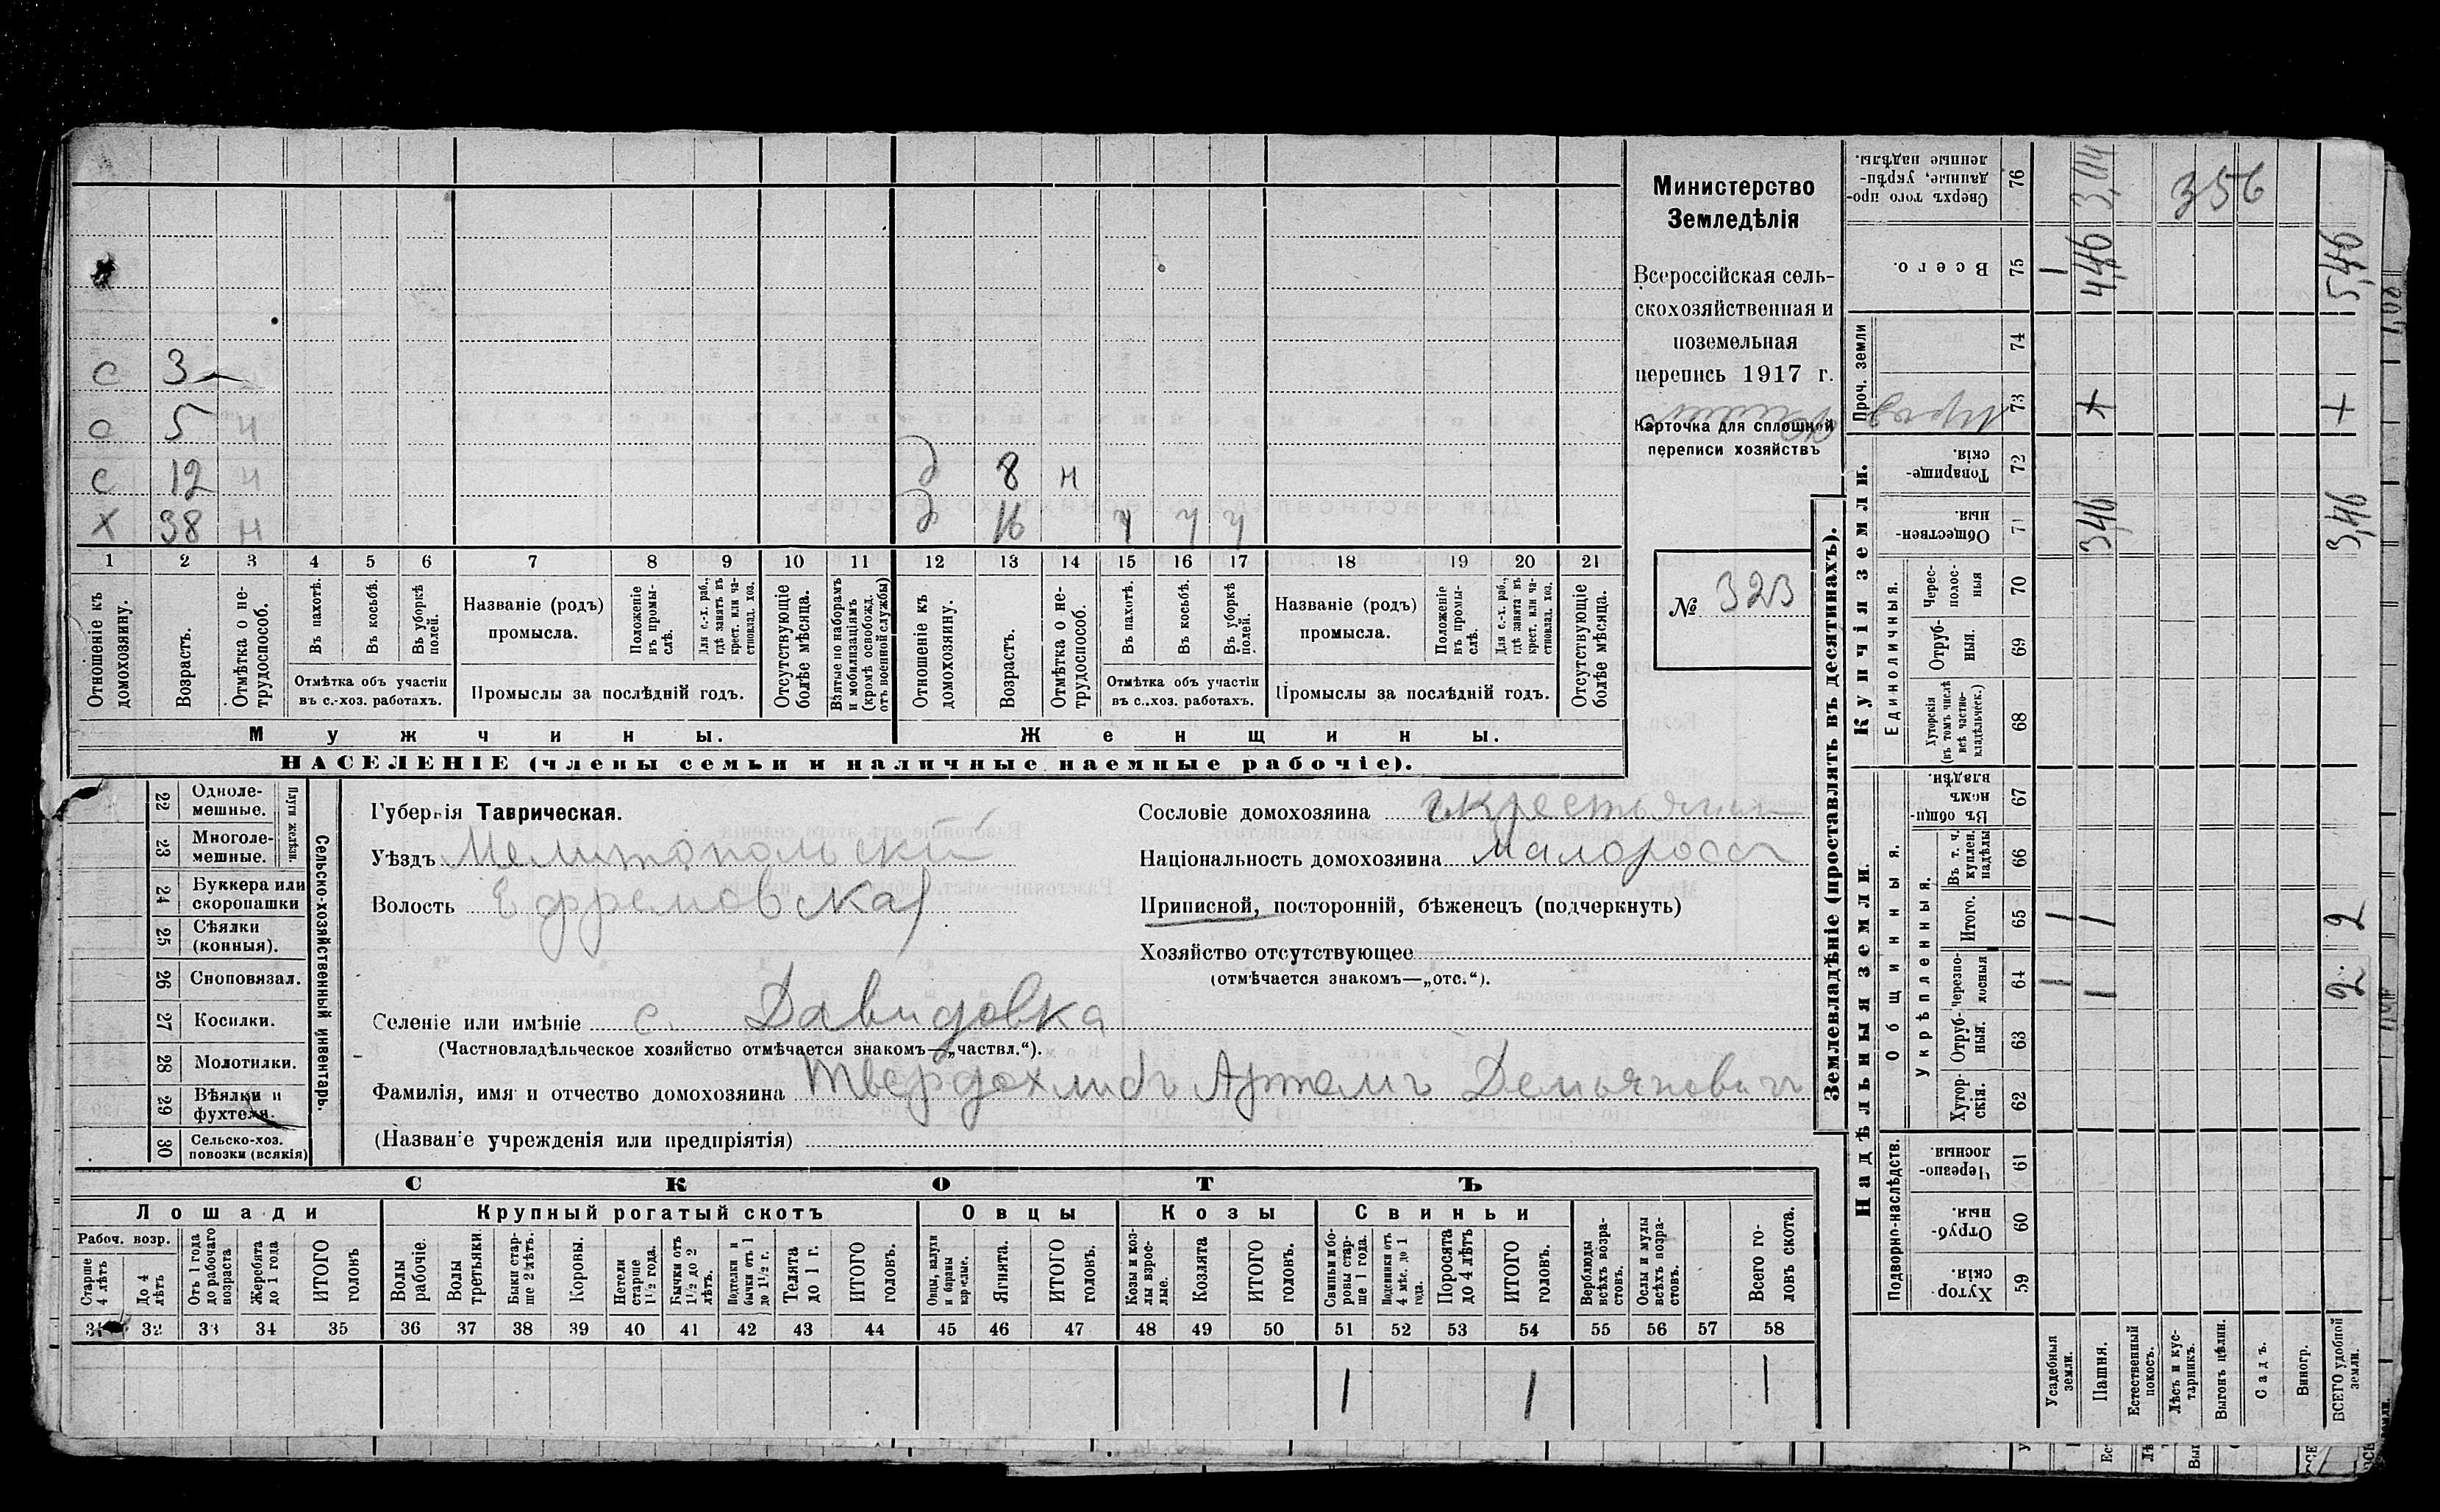 с 3
с 5 н
с 12 н д 8 н
х 38 н д 16 ч ч ч
1 2 3 4 5 6 7 8 9 10 11 12 13 14 15 16 17 18 19 20 21
Отношеніе къ домохозяину.
Возрастъ.
Отмѣтка о не-
трудоспособ.
Въ пахотѣ.
Въ косьбѣ.
Въ уборкѣ
полей.
Отмѣтка объ участіи
въ с.-хоз. работахъ.
Названіе (родъ)
промысла.
Положеніе
въ промы-
слѣ.
Для с.-х. раб.,
гдѣ занятъ въ
крест. или ча-
стновлад. хоз.
Промыслы за послѣдній годъ.
Отсутствующіе
болѣе мѣсяца.
Взятые по наборамъ
и мобилизаціямъ
(кромѣ освобожд.
отъ военной службы)
Отношеніе къ
домохозяину.
Возрастъ.
Отмѣтка о не-
трудоспособ.
Въ пахотѣ.
Въ косьбѣ.
Въ уборкѣ
полей.
Отмѣтка объ участіи
въ с..хоз. работахъ.
Названіе (родъ)
промысла.
Положеніе
въ промы-
слѣ.
Для с.-х. раб.,
гдѣ занятъ въ
крест. или ча-
стновлад. хоз.
Промыслы за послѣдній годъ.
Отсутствующіе
болѣе мѣсяца.
Мужчины.
Женщины.
НАСЕЛЕНІЕ (члены семьи и наличные наемные рабочіе).
Министерство
Земледѣлія
Всероссійская сель-
скохозяйственная и
поземельная
перепись 1917 г.
Карточка для сплошной
переписи хозяйствъ
№ 323
Сельско-хозяйственный инвентарь.
Плуги желѣзн.
22 Одноле-
мешные.
23 Многоле-
мешные.
24 Буккера или
скоропашки
25 Сѣялки
(конныя).
26 Сноповязал.
27 Косилки.
28 Молотилки.
29 Вѣялки и
фухтеля.
30 Сельско-хоз.
повозки (всякія)
Губернія Таврическая.
Уѣздъ Мелитопольскій
Волость Ефремовская
Селеніе или имѣніе с. Давидовка
(Частновладѣльческое хозяйство отмѣчается знакомъ—„частвл.“).
Фамилія, имя и отчество домохозяина Твердохлибъ Артемъ Демьяновичъ
(Названіе учрежденія или предпріятія)
Сословіе домохозяина крестьянинъ
Національность домохозяина малороссъ
Приписной, посторонній, бѣженецъ (подчеркнуть)
Хозяйство отсутствующее
(отмѣчается знакомъ—„отс.“).
СКОТЪ
Лошади
Крупный рогатый скотъ
Овцы
Козы
Свиньи
Рабоч. возр.
Старше
4 лѣтъ
До 4
лѣтъ
Отъ 1 года
до рабочаго
возраста
Жеребята
до 1 года
ИТОГО
головъ
Волы
рабочіе.
Волы
третьяки
Быки стар-
ше 2 лѣтъ.
Коровы.
Нетели
старше
1½ года.
Бычки отъ
1½ до 2
лѣтъ.
Подтелки и
бычки отъ 1
до 1½ г.
Телята
до 1 г.
ИТОГО
головъ.
Овцы, валухи
и бараны
взрослые.
Ягнята.
ИТОГО
головъ.
Козы и коз-
лы взрос-
лые.
Козлята
ИТОГО
головъ.
Свиньи и бо-
ровы стар-
ше 1 года.
Подсвинки отъ
4 мѣс. до 1
года.
Поросята
до 4 лѣтъ
ИТОГО
головъ.
Верблюды
всѣхъ возра-
стовъ.
Ослы и мулы
всѣхъ возра-
стовъ.
Всего го-
ловъ скота.
31 32 33 34 35 36 37 38 39 40 41 42 43 44 45 46 47 48 49 50 51 52 53 54 55 56 57 58
1 1 1
Землевладѣніе (проставлять въ десятинахъ).
Сверхъ того про-
данные, укрѣп-
ленные надѣлы.
76 3,04 356
Всего.
75 1 4,46 5,46
Проч. земли
74
73 + +
Купчія земли.
Товарище-
скія.
72
Обществен-
ныя.
71 3,46 3,46
Единоличныя.
Черес-
полос-
ныя
70
Отруб-
ныя.
69
Хуторскія
(въ томъ числѣ
всѣ частно-
владѣльческ.)
68
Надѣльныя земли.
Общинныя.
Въ общи-
номъ
владѣн.
67
Укрѣпленныя.
Въ т. ч.
куплен.
надѣлы
66
Итого.
65 1 1 2
Черезпо-
лосныя
64 1 1 2
Отруб-
ныя.
63
Хутор-
скія.
62
Подворно-наслѣдств.
Черезпо-
лосныя.
61
Отруб-
ныя.
60
Хутор-
скія.
59
Усадебныя
земли.
Пашня.
Естественный
покосъ.
Лѣсъ и кус-
тарникъ.
Выгонъ цѣлин.
Садъ.
Виногр.
ВСЕГО удобной
земли.